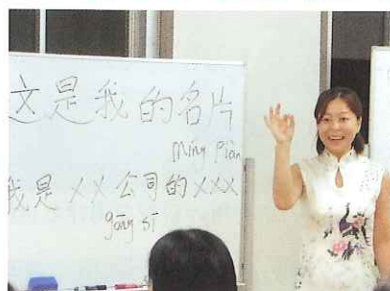 文是我的名片
míng piàn
我是××公司的×××
gōng sī